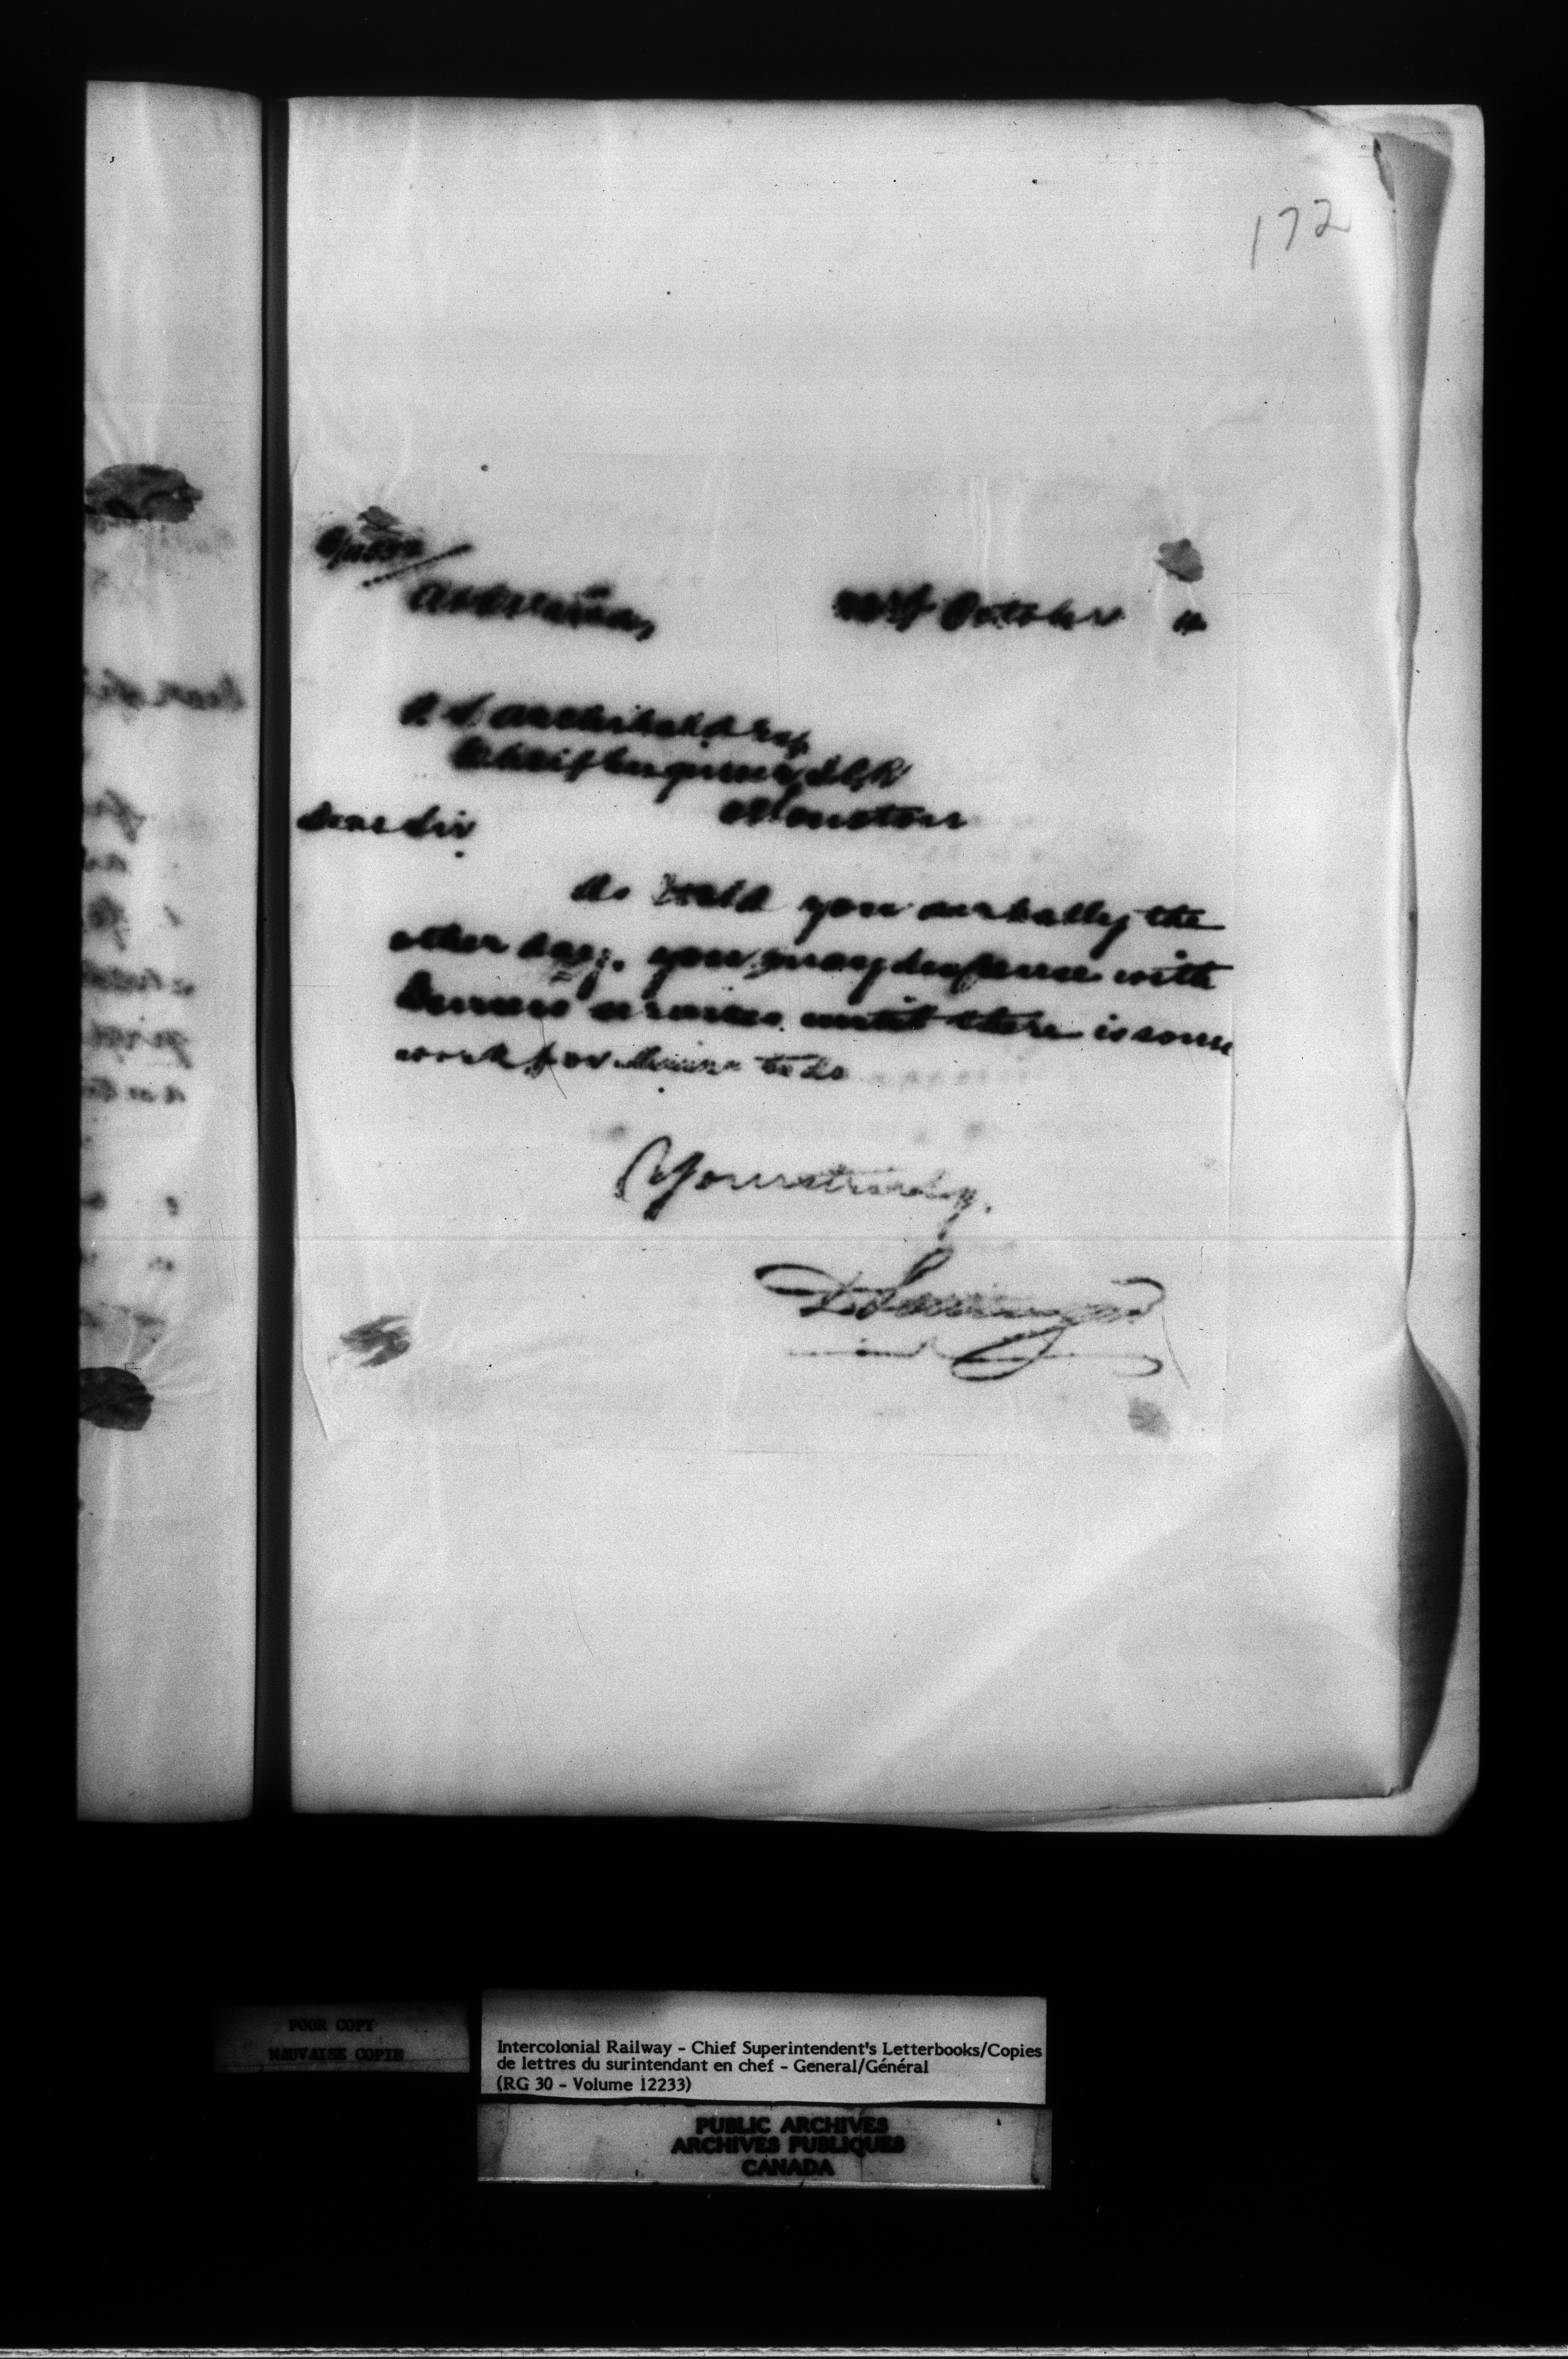 172
October
P. S. Archibald Esq
Chief Engineer I.C.R
Moncton
Dear Sir
As I told you verbally the
other day, you may dispense with
services until there is some
work for to do
Yours truly,
D Pottinger
POOR COPY
MAUVAISE COPIE
Intercolonial Railway - Chief Superintendent's Letterbooks/Copies
de lettres du surintendant en chef - General/Général
(RG 30 - Volume 12233)
PUBLIC ARCHIVES
ARCHIVES PUBLIQUES
CANADA